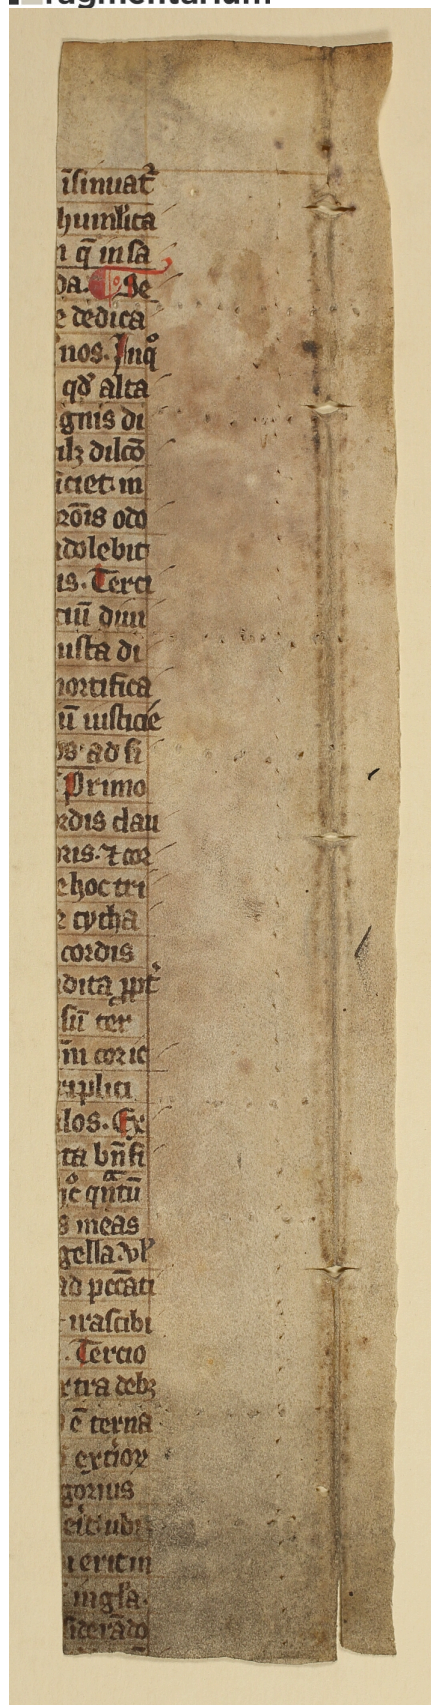 ragmentarium
isinuat᷑
humil̓ita
q̄ in sa
da. Se
e dedica
nos. Inqͦ
qd̓ alta
gnis di
ilꝫ dilcō
iciet in
rōis odo
dolebit
is. Terci
ciū diui
iusta di
mortifica
ū iusticie
os ad si
Primo
rdis clau
oris. ⁊ cor
e hoc tri
cytha
cordis
dita ꝓpt᷑
siū ter
m̄ coric
riplici
los. Ex
ta bn̄fi
qn̄tū
s meas
gella. vl̓
ad pccāti
irascibi
. Tercio
tra debꝫ
ē terna
exterior
gorius
eic̄ ubi
i erit in
in gl̓a.
siderādo